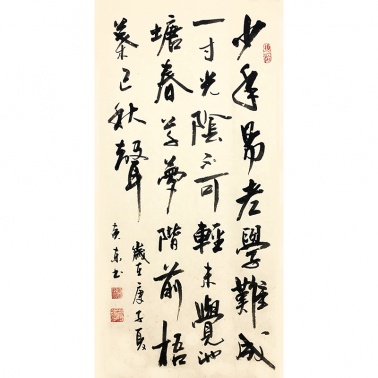 少年易老學難成
一寸光陰不可輕未覺池
塘春草夢階前梧
葉已秋聲
歲在庚子夏
東書